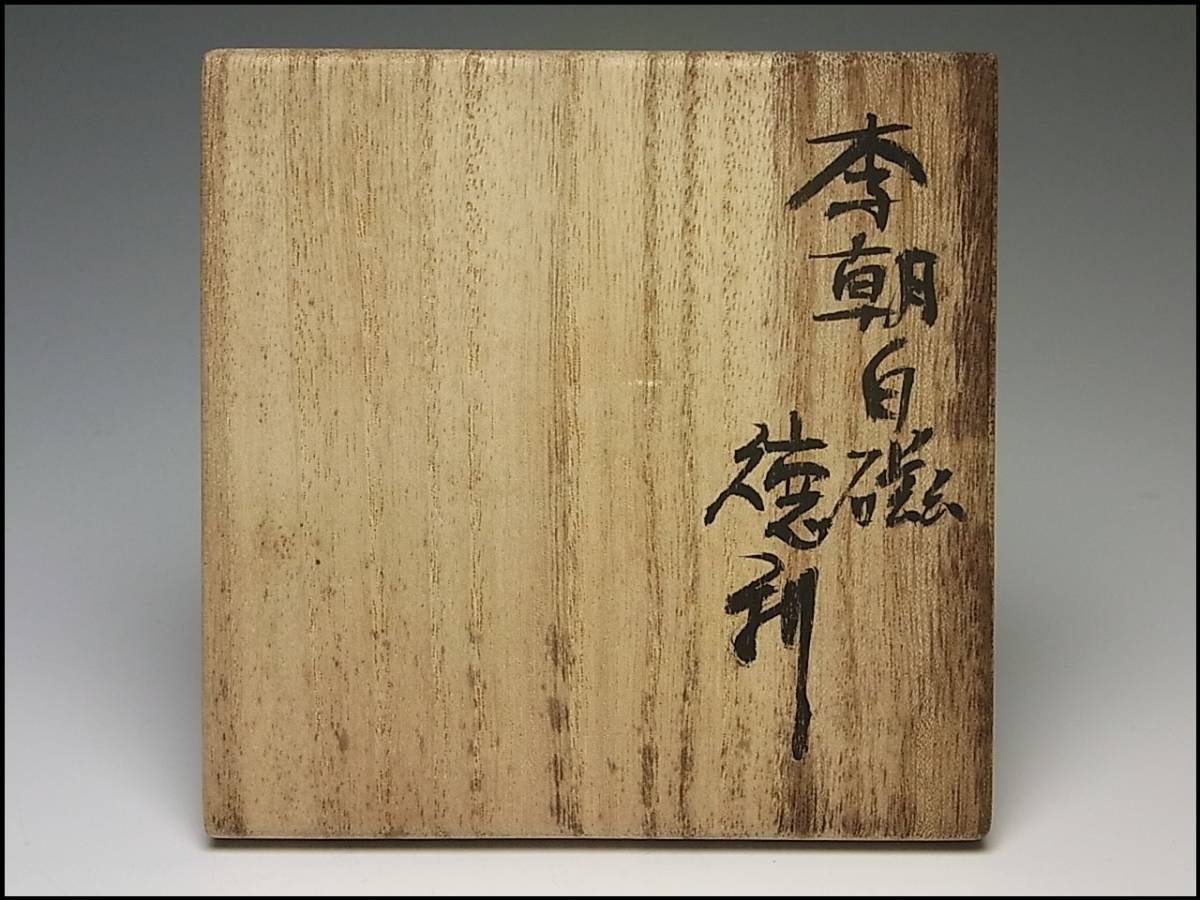 李朝白磁
徳利